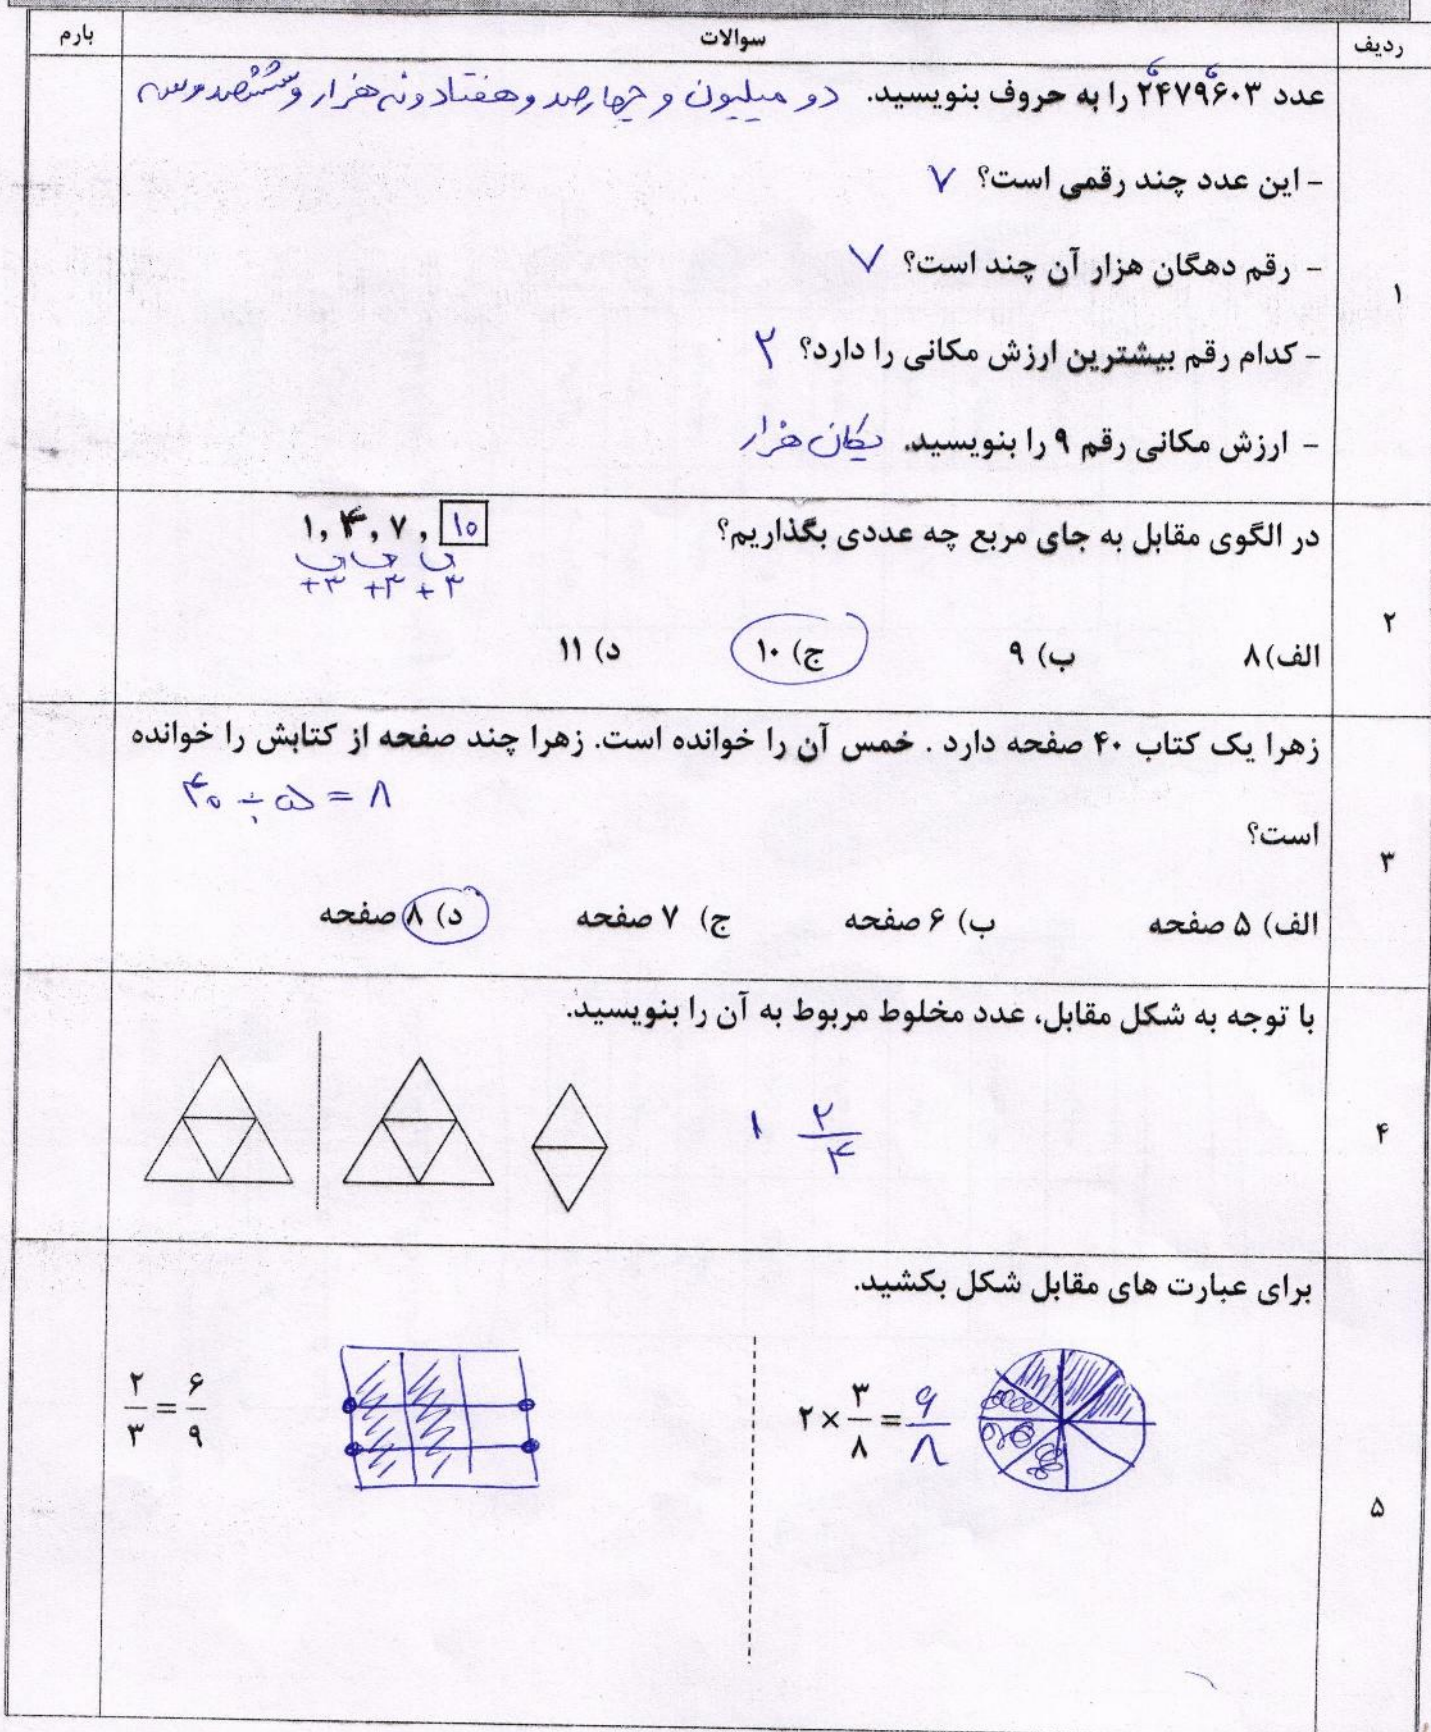 ردیف سوالات بارم
عدد ۲۴۷۹۶۰۳ را به حروف بنویسید. دو میلیون و چهارصد و هفتاد و نه هزار و ششصد و سه
- این عدد چند رقمی است؟ ۷
- رقم دهگان هزار آن چند است؟ ۷
۱
- کدام رقم بیشترین ارزش مکانی را دارد؟ ۲
- ارزش مکانی رقم ۹ را بنویسید. یکان هزار
در الگوی مقابل به جای مربع چه عددی بگذاریم؟ ۱, ۴, ۷, ۱۰
+۳ +۳ +۳
۲
الف) ۸ ب) ۹ ج) ۱۰ د) ۱۱
زهرا یک کتاب ۴۰ صفحه دارد . خمس آن را خوانده است. زهرا چند صفحه از کتابش را خوانده
۴۰ ÷ ۵ = ۸
است؟
۳
الف) ۵ صفحه ب) ۶ صفحه ج) ۷ صفحه د) ۸ صفحه
با توجه به شکل مقابل، عدد مخلوط مربوط به آن را بنویسید.
۴
۱ ۲/۴
برای عبارت های مقابل شکل بکشید.
۲ × ۳/۸ = ۶/۸
۲/۳ = ۶/۹
۵